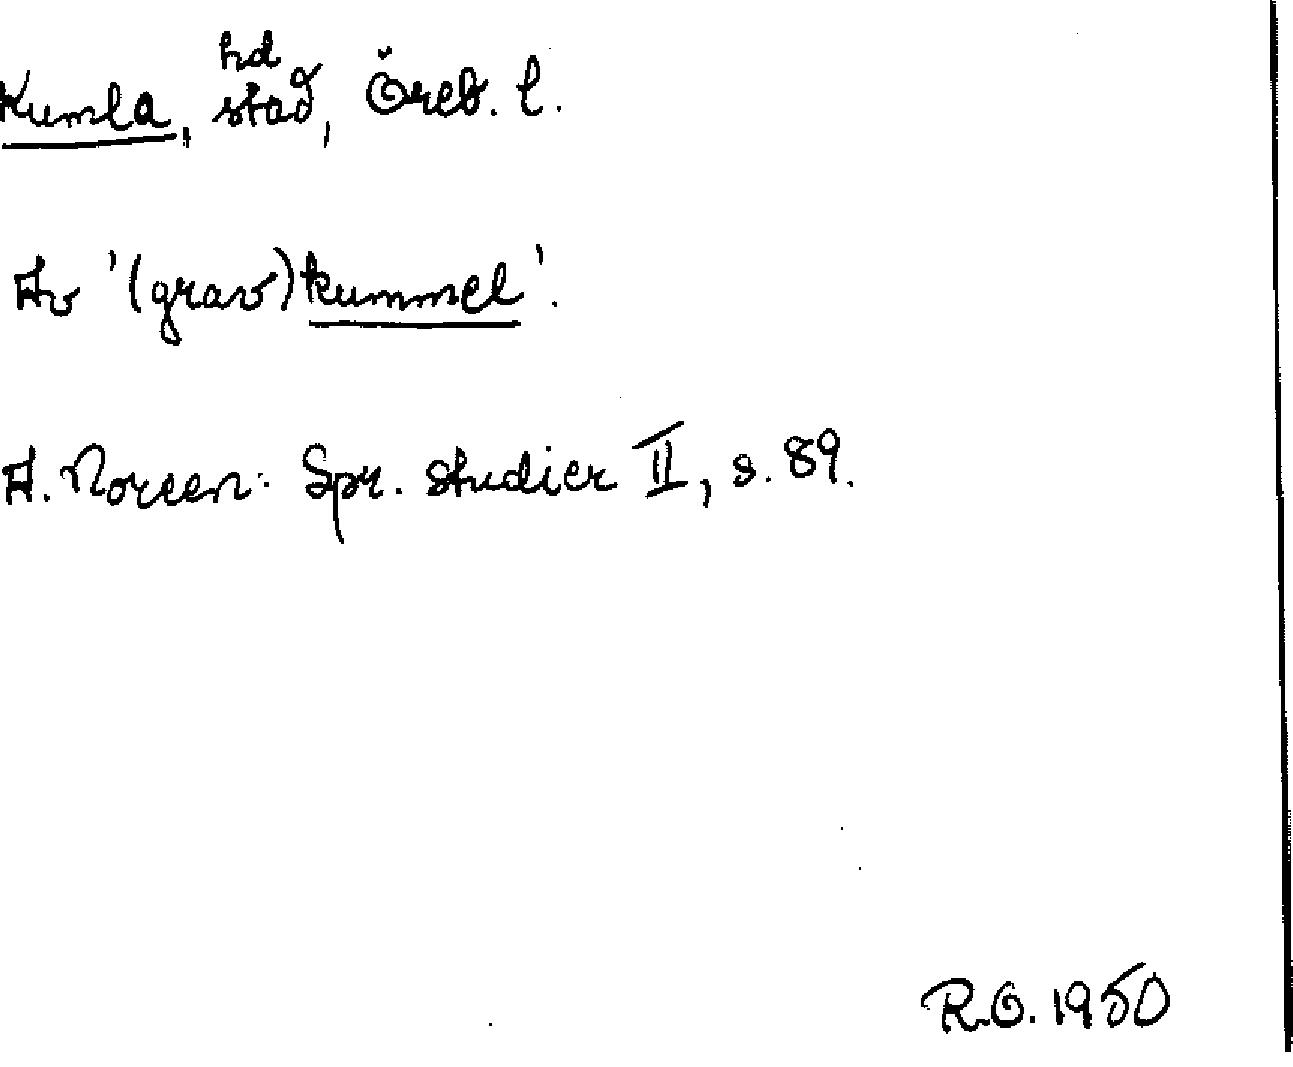 hd
Kumla, stad, Öreb. l.
Av '(grav)kummel'.
A. Noreen: Spr. studier II, s. 89.
R.O. 1950